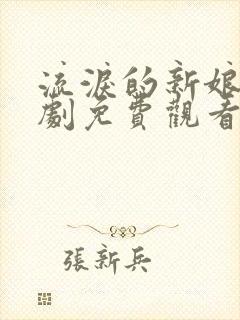 流淚的新娘
劇免費觀看
張新兵